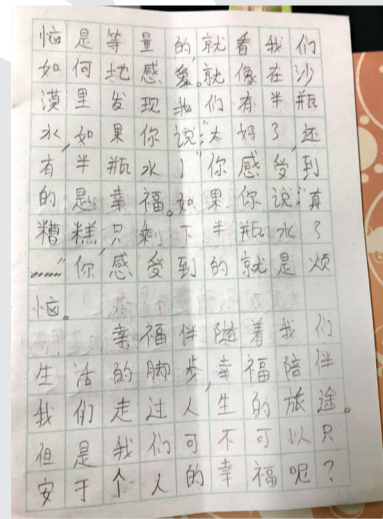 恼是等量的,就看我们
如何地感受。就像在沙
漠里发现我们有半瓶
水,如果你说:“太好了,还
有半瓶水!”你感受到
的是幸福。如果你说:“真
糟糕,只剩下半瓶水了
……”你感受到的就是烦
恼。
幸福伴随着我们
生活的脚步,幸福陪伴
我们走过人生的旅途。
但是我们可不可以只
安于个人的幸福呢?